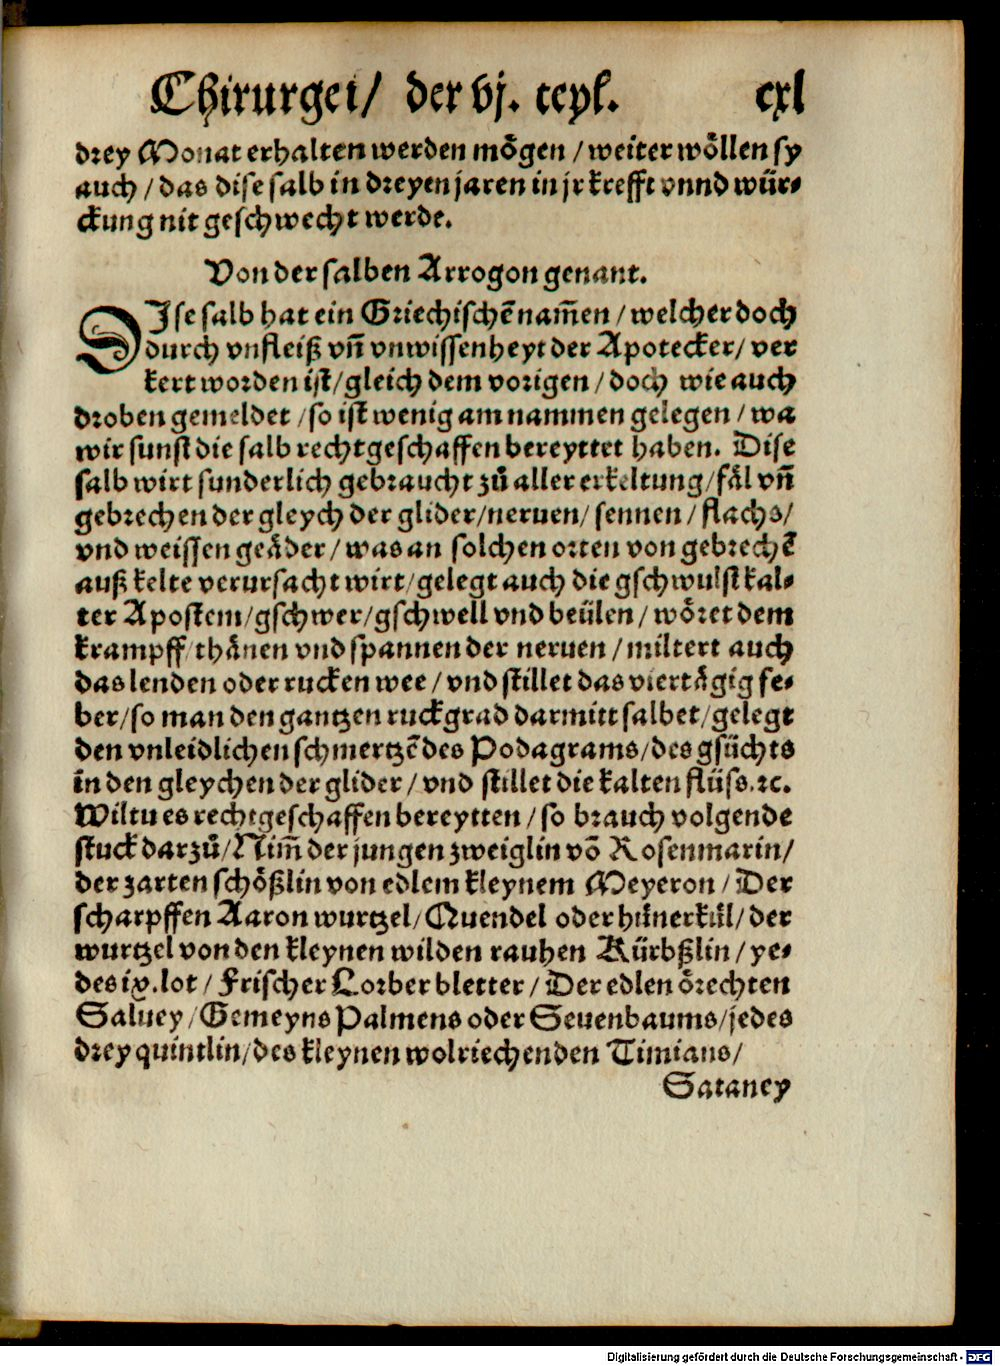 Chirurgei/ der vj. teyl. cxl
drey Monat erhalten werden moͤgen / weiter woͤllen sy
auch / das dise salb in dreyen jaren in jr krefft vnnd wuͤr⸗
ckung nit geschwecht werde.
Von der salben Arrogon genant.
DIse salb hat ein Griechischē nam̄en / welcher doch
durch vnfleiß vn̄ vnwissenheyt der Apotecker/ ver
kert worden ist/ gleich dem vorigen / doch wie auch
droben gemeldet / so ist wenig am nammen gelegen / wa
wir sunst die salb rechtgeschaffen bereyttet haben. Dise
salb wirt sunderlich gebraucht zuͦ aller erkeltung/ faͤl vn̄
gebrechen der gleych der glider/ neruen/ sennen / flachs/
vnd weissen geaͤder / was an solchen orten von gebrechē
auß kelte verursacht wirt/ gelegt auch die gschwulst kal⸗
ter Apostem/ gschwer/ gschwell vnd beuͤlen / woͤret dem
krampff/ thaͤnen vnd spannen der neruen / miltert auch
das lenden oder rucken wee / vnd stillet das viertaͤgig fe⸗
ber/ so man den gantzen ruckgrad darmitt salbet/ gelegt
den vnleidlichen schmertzē des Podagrams/ des gsuͤchts
in den gleychen der glider / vnd stillet die kalten fluͤss. ꝛc.
Wiltu es rechtgeschaffen bereytten / so brauch volgende
stuck darzuͦ/ Nim̄ der jungen zweiglin vō Rosenmarin/
der zarten schoͤßlin von edlem kleynem Meyeron / Der
scharpffen Aaron wurtzel/ Quendel oder huͤnerkuͤl/ der
wurtzel von den kleynen wilden rauhen Kuͤrbßlin / ye⸗
des ix. lot / Frischer Lorber bletter / Der edlen oͤrechten
Saluey / Gemeyns Palmens oder Seuenbaums/ jedes
drey quintlin/ des kleynen wolriechenden Timians/
Sataney
Digitalisierung gefördert durch die Deutsche Forschungsgemeinschaft - DFG